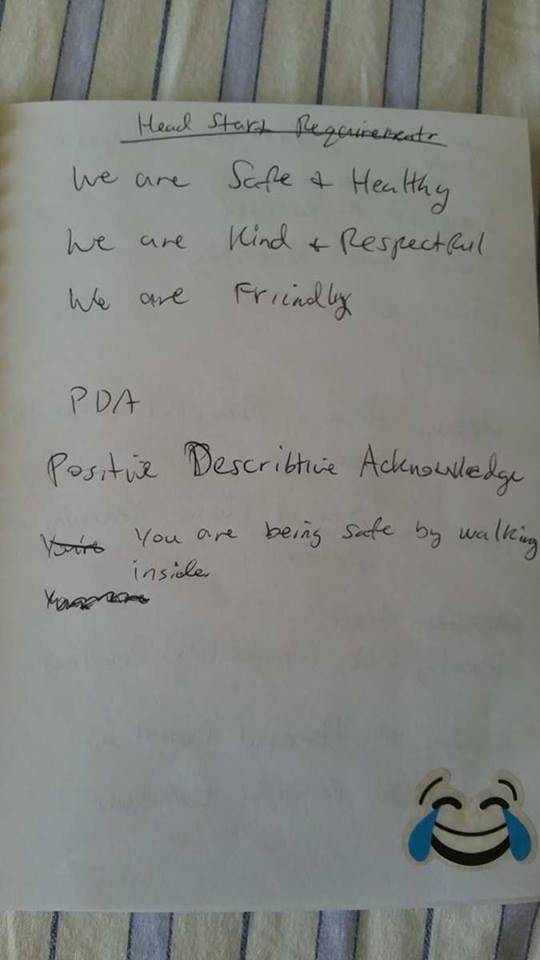 Head Start Requirements
We are Safe + Healthy
We are Kind + Respectful
We are Friindly
PDA
Positive Describtive Acknowledge
You're You are being safe by walking
inside